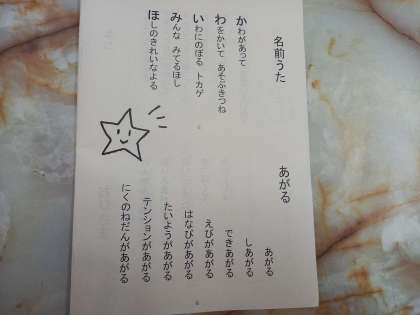 名前うた
かわがあって
わをかいて あそぶきつね
いわにのぼる トカゲ
みんな みてるほし
ほしのきれいなよる
あがる
あがる
しあがる
できあがる
えびがあがる
はなびがあがる
たいようがあがる
テンションがあがる
にくのねだんがあがる